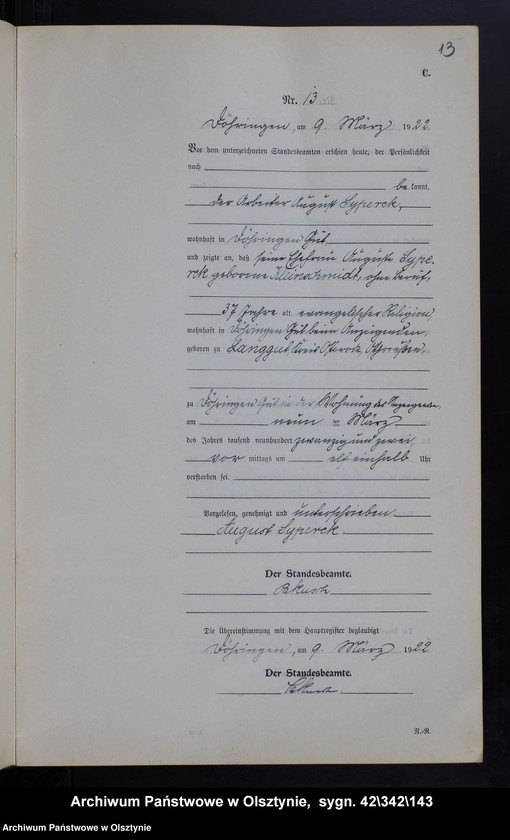 13
C.
Nr. 13
Döhringen, am 9. März 1922
Vor dem unterzeichneten Standesbeamten erschien heute, der Persönlichkeit
nach
be kannt,
der Arbeiter August Syperek,
wohnhaft in Döhringen Gut
und zeigte an, daß seine Ehefrau Auguste Sype-
rek geborene Kleinschmidt, ohne Beruf,
37 Jahre alt, evangelischer Religion
wohnhaft in Döhringen Gut beim Anzeigenden,
geboren zu Langgut, Kreis Osterode, Ostpreußen,
zu Döhringen Gut in der Wohnung des Anzeigenden,
am neun ten März
des Jahres tausend neunhundert zwanzig und zwei
vor mittags um elf einhalb Uhr
verstorben sei.
Vorgelesen, genehmigt und unterschrieben.
August Syperek
Der Standesbeamte.
Die Übereinstimmung mit dem Hauptregister beglaubigt
Döhringen, am 9. März 1922
Der Standesbeamte.
N.-R.
Archiwum Państwowe w Olsztynie, sygn. 42\342\143
Archiwum Państwowe w Olsztynie